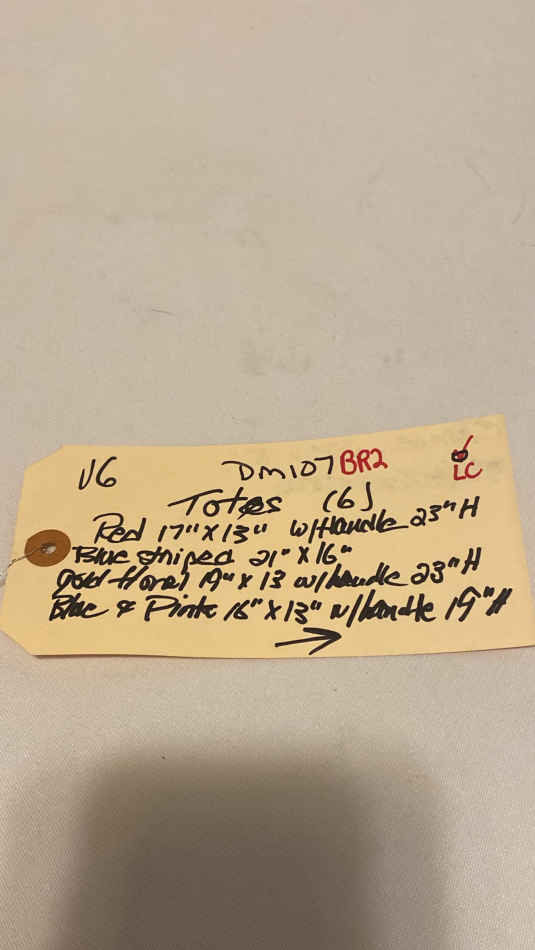 V6 DM107 BR2
LC
Totes (6)
Red 17" x 13" w/Handle 23" H
Blue striped 21" x 16"
Gold floral 19" x 13 w/handle 23" H
Blue & Pink 16" x 13" w/handle 19" H